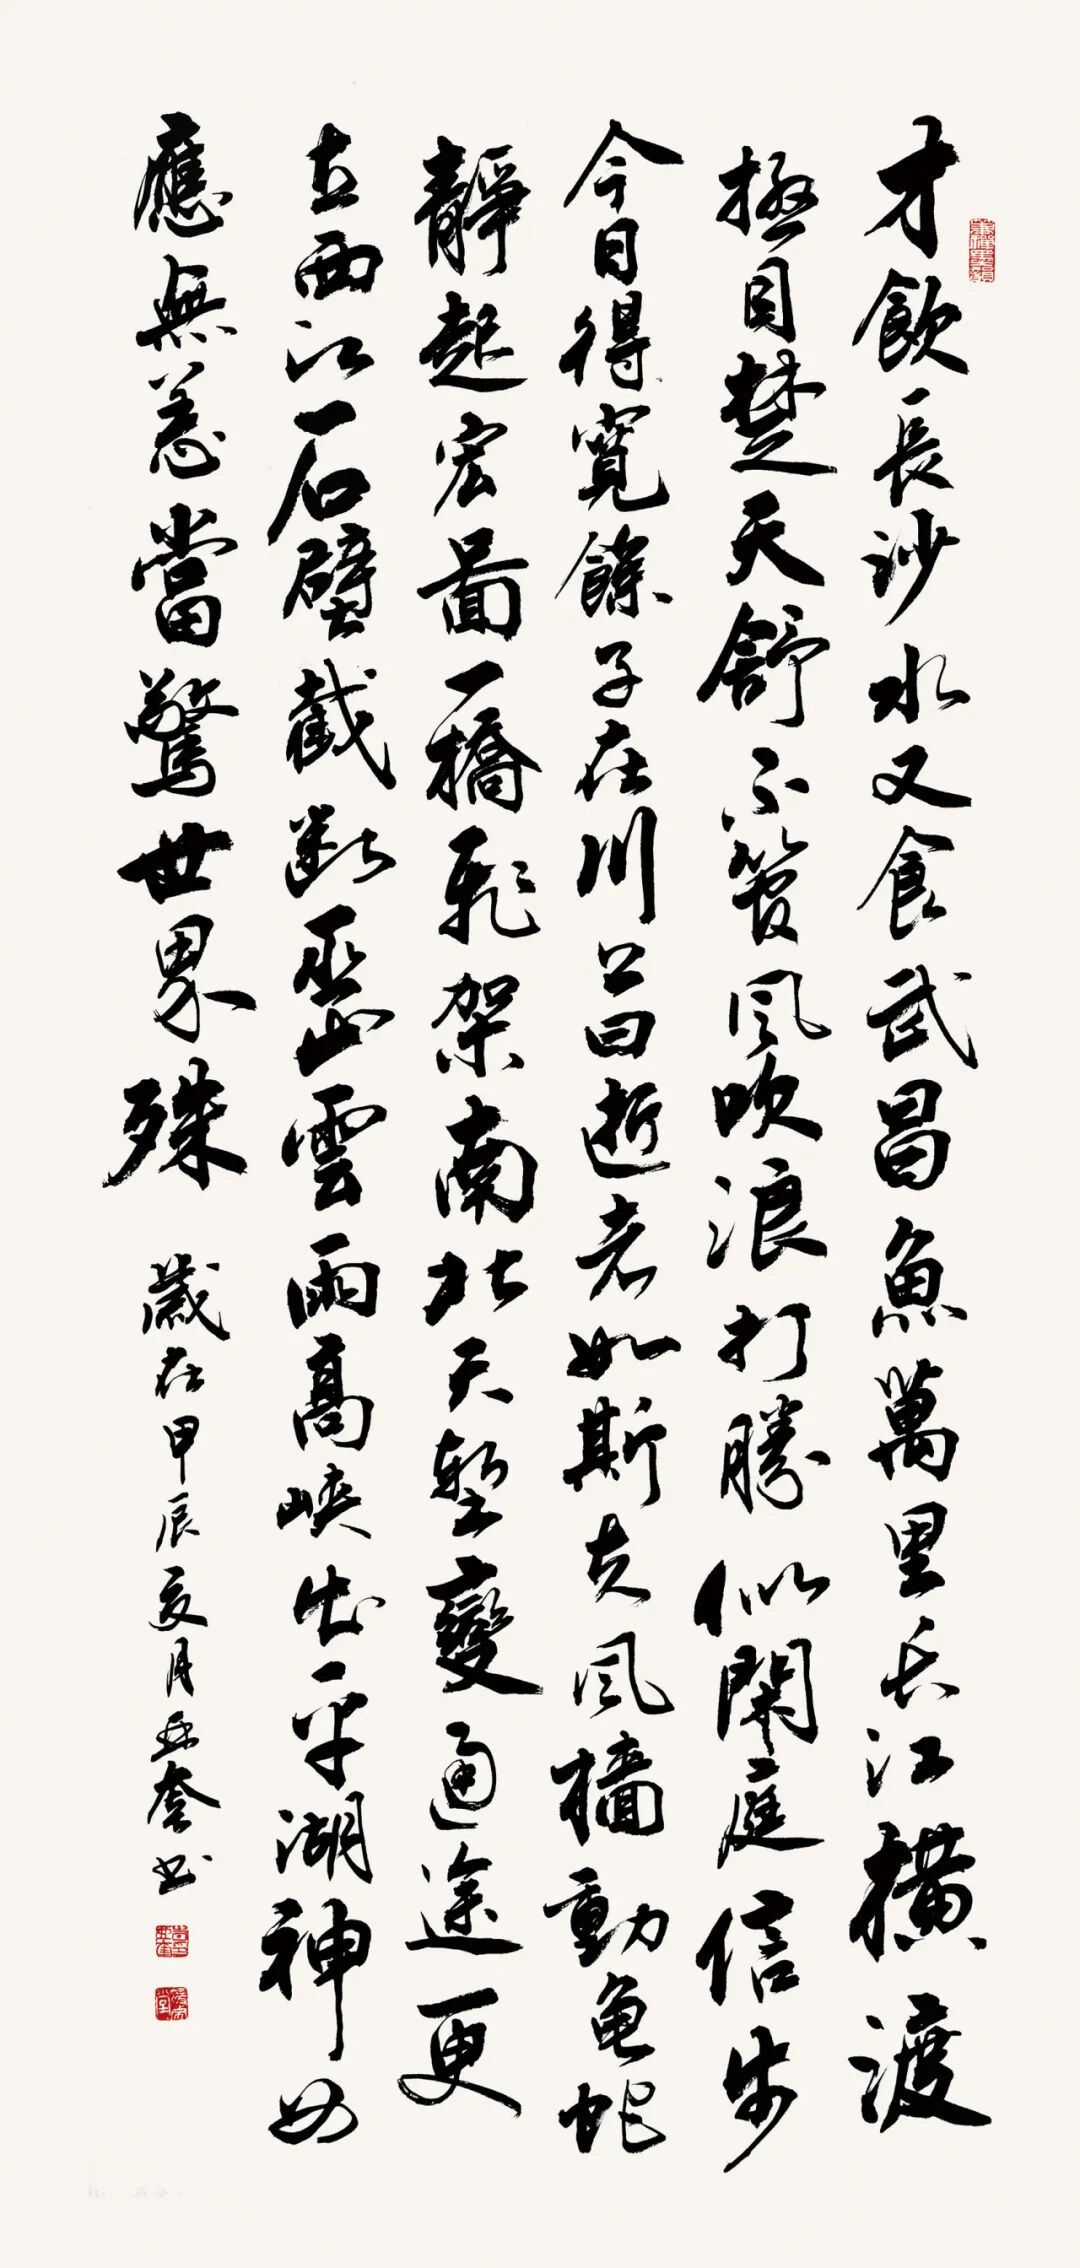 才飲長沙水又食武昌魚萬里长江橫渡
極目楚天舒不管風吹浪打勝似閑庭信步
今日得寬餘子在川上曰逝者如斯夫風檣動龜蛇
靜起宏圖一橋飛架南北天塹變通途更
立西江石壁截斷巫山雲雨高峽出平湖神女
應無恙當驚世界殊 歲在甲辰夏月奎书